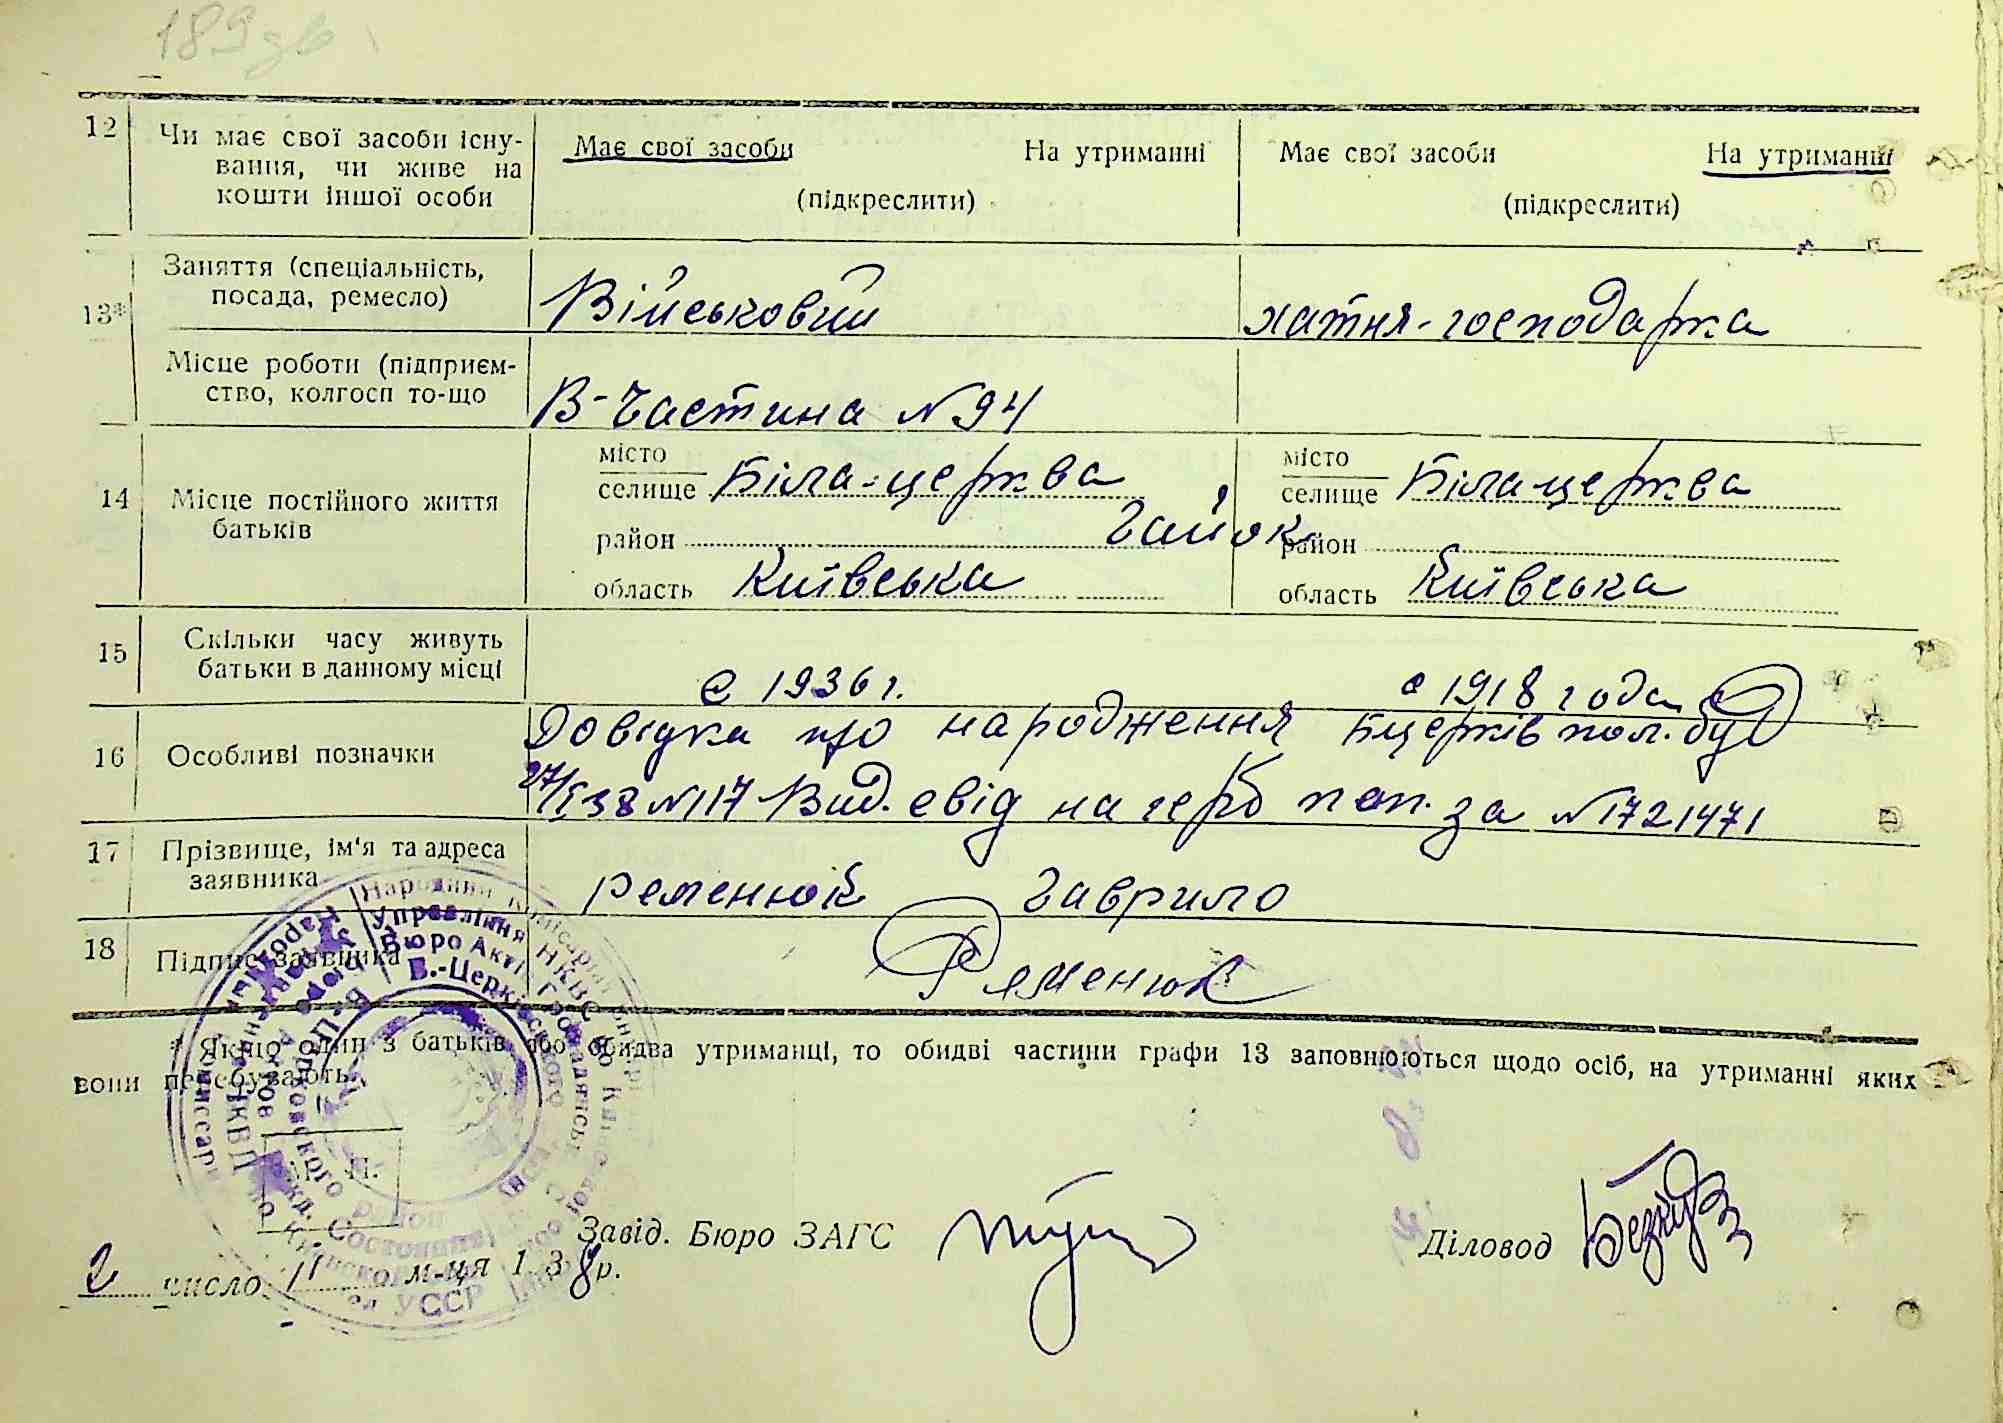 189 зв
12 Чи має свої засоби існу-
вання, чи живе на
кошти іншої особи
Має свої засоби На утриманні
(підкреслити)
Має свої засоби На утриманні
(підкреслити)
13* Заняття (спеціальність,
посада, ремесло)
Військовий
хатня-господарка
Місце роботи (підприєм-
ство, колгосп то-що
В-Частина №94
14 Місце постійного життя
батьків
місто
селище Біла-церква
район Гайок
область Київська
місто
селище Біла церква
район
область Київська
15 Скільки часу живуть
батьки в данному місці
с 1936 г.
с 1918 года
16 Особливі позначки
Довідка про народження Бцерків пол. буд
27/I 38 №117 Вид. свід на герб пап. за №1721471
17 Прізвище, ім'я та адреса
заявника
Ременюк Гаврило
18 Підпис заявника
Ременюк
* Якщо один з батьків або обидва утриманці, то обидві частини графи 13 заповнюються щодо осіб, на утриманні яких
вони перебувають.
Управління НКВС по
Бюро Акті Громадянськ
Б.-Церківського
УССР
М. П.
Завід. Бюро ЗАГС
Діловод
2 число II м-ця 1938 р.